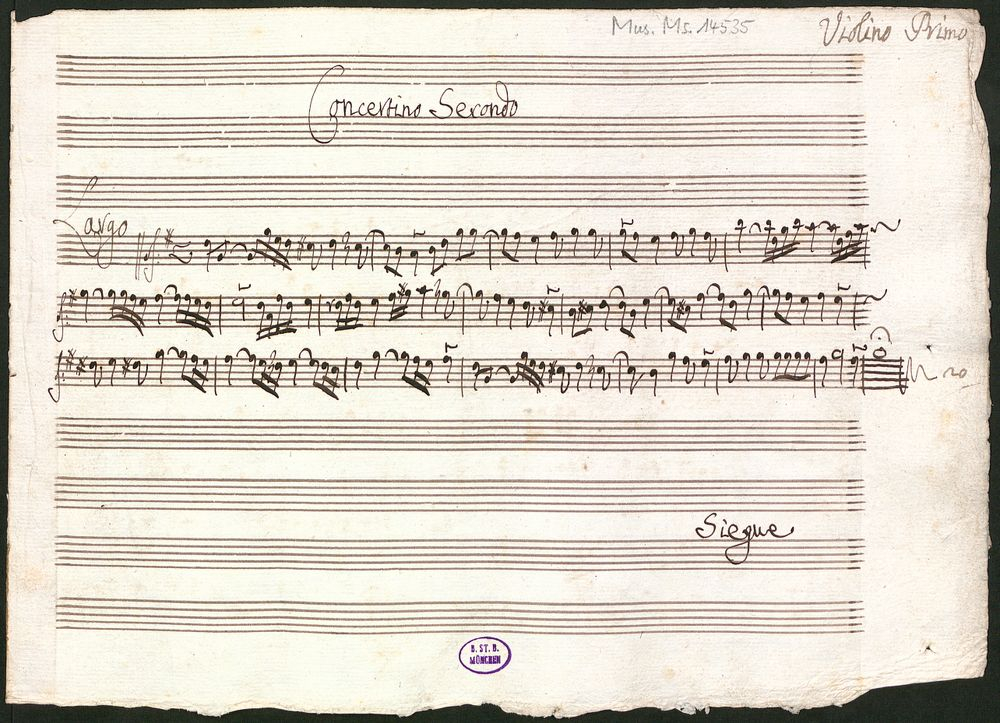 Mus. Ms. 14535
Violino Primo
Concertino Secondo
Largo
Siegue
B. ST. B.
MÜNCHEN